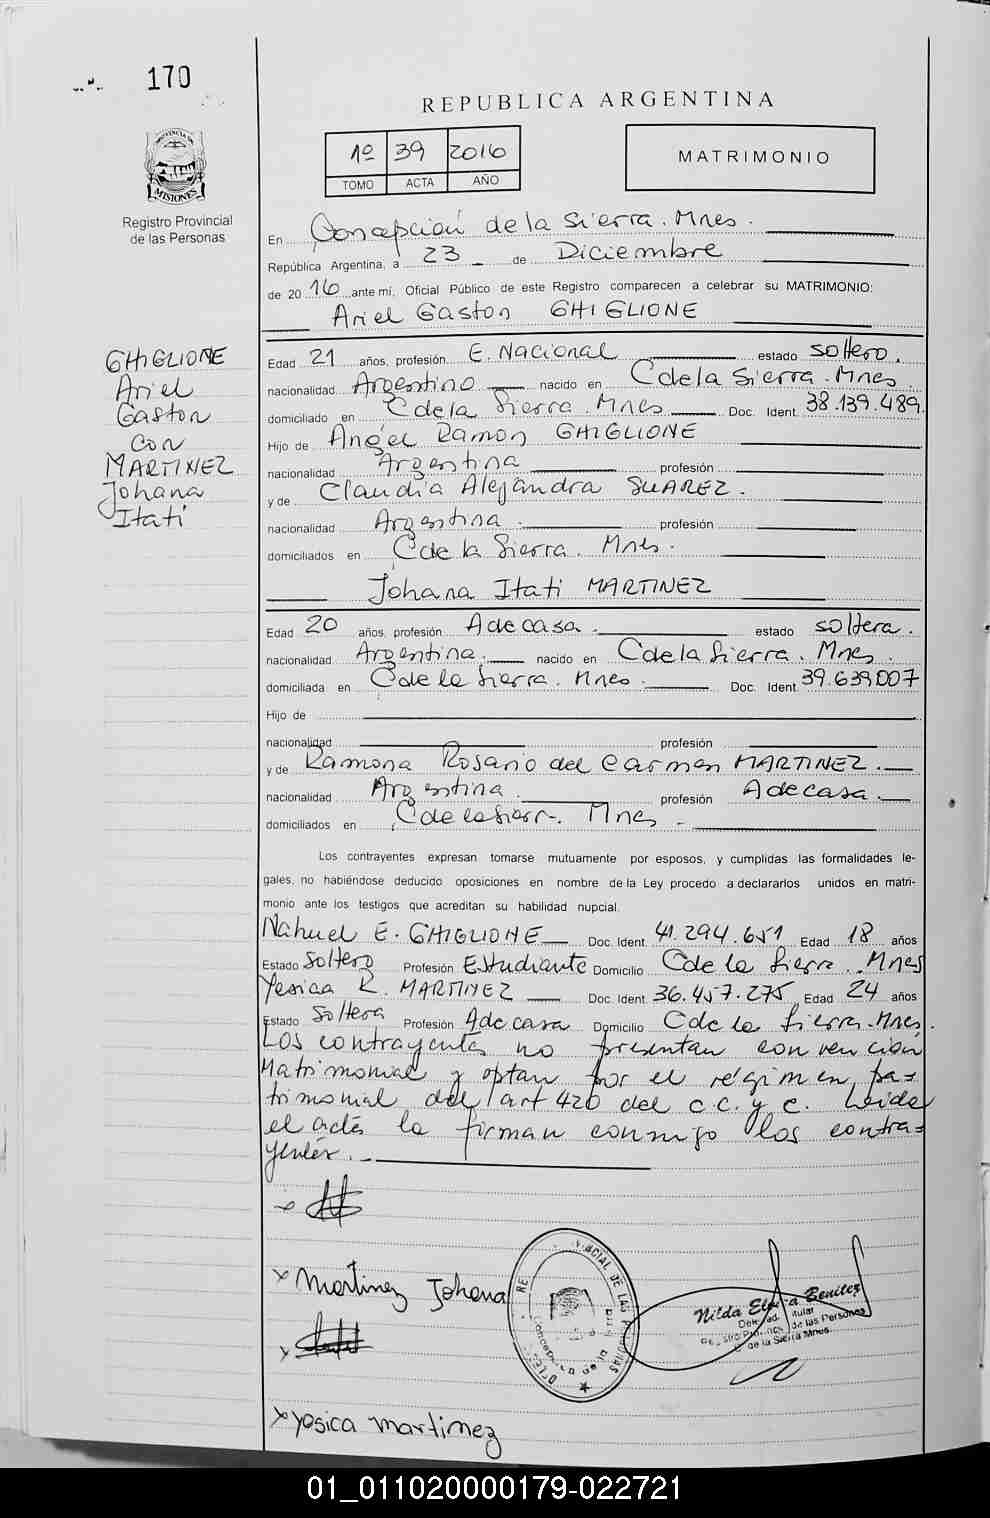 170
REPUBLICA ARGENTINA
1º 39 2016
TOMO ACTA AÑO
MATRIMONIO
PROVINCIA DE
MISIONES
Registro Provincial
de las Personas
En Concepción de la Sierra. Mnes.
República Argentina, a 23 de Diciembre
de 2016 ante mí, Oficial Público de este Registro comparecen a celebrar su MATRIMONIO:
Ariel Gaston GHIGLIONE
GHIGLIONE
Ariel
Gaston
con
MARTINEZ
Johana
Itati
Edad 21 años, profesión E. Nacional estado soltero.
nacionalidad Argentino nacido en C de la Sierra. Mnes.
domiciliado en C de la Sierra. Mnes Doc. Ident. 38.139.489.
Hijo de Angel Ramon GHIGLIONE
nacionalidad Argentina profesión
y de Claudia Alejandra SUAREZ.
nacionalidad Argentina. profesión
domiciliados en C de la Sierra. Mnes.
Johana Itati MARTINEZ
Edad 20 años, profesión A de casa. estado soltera.
nacionalidad Argentina. nacido en C de la Sierra. Mnes.
domiciliada en C de la Sierra. Mnes. Doc. Ident. 39.639.007
Hijo de
nacionalidad profesión
y de Ramona Rosario del Carmen MARTINEZ.
nacionalidad Argentina. profesión A de casa.
domiciliados en C de la Sierr. Mnes
Los contrayentes expresan tomarse mutuamente por esposos, y cumplidas las formalidades le-
gales, no habiéndose deducido oposiciones en nombre de la Ley procedo a declararlos unidos en matri-
monio ante los testigos que acreditan su habilidad nupcial.
Nahuel E. GHIGLIONE Doc. Ident. 41.294.651 Edad 18 años
Estado Soltero Profesión Estudiante Domicilio C de la Sierra. Mnes
Yesica R. MARTINEZ Doc. Ident. 36.457.275 Edad 24 años
Estado Soltera Profesión A de casa Domicilio C de la Sierra. Mnes.
Los contrayentes no presentan convención
Matrimonial y optan por el régimen pa=
trimonial del art 420 del c.c. y c. Leida
el acta la firman conmigo los contra=
yentes.
x
x Martinez Johana
x
x yesica martinez
Nilda Benitez
Titular
de las Personas
C. de la Sierra Mnes.
01_011020000179-022721